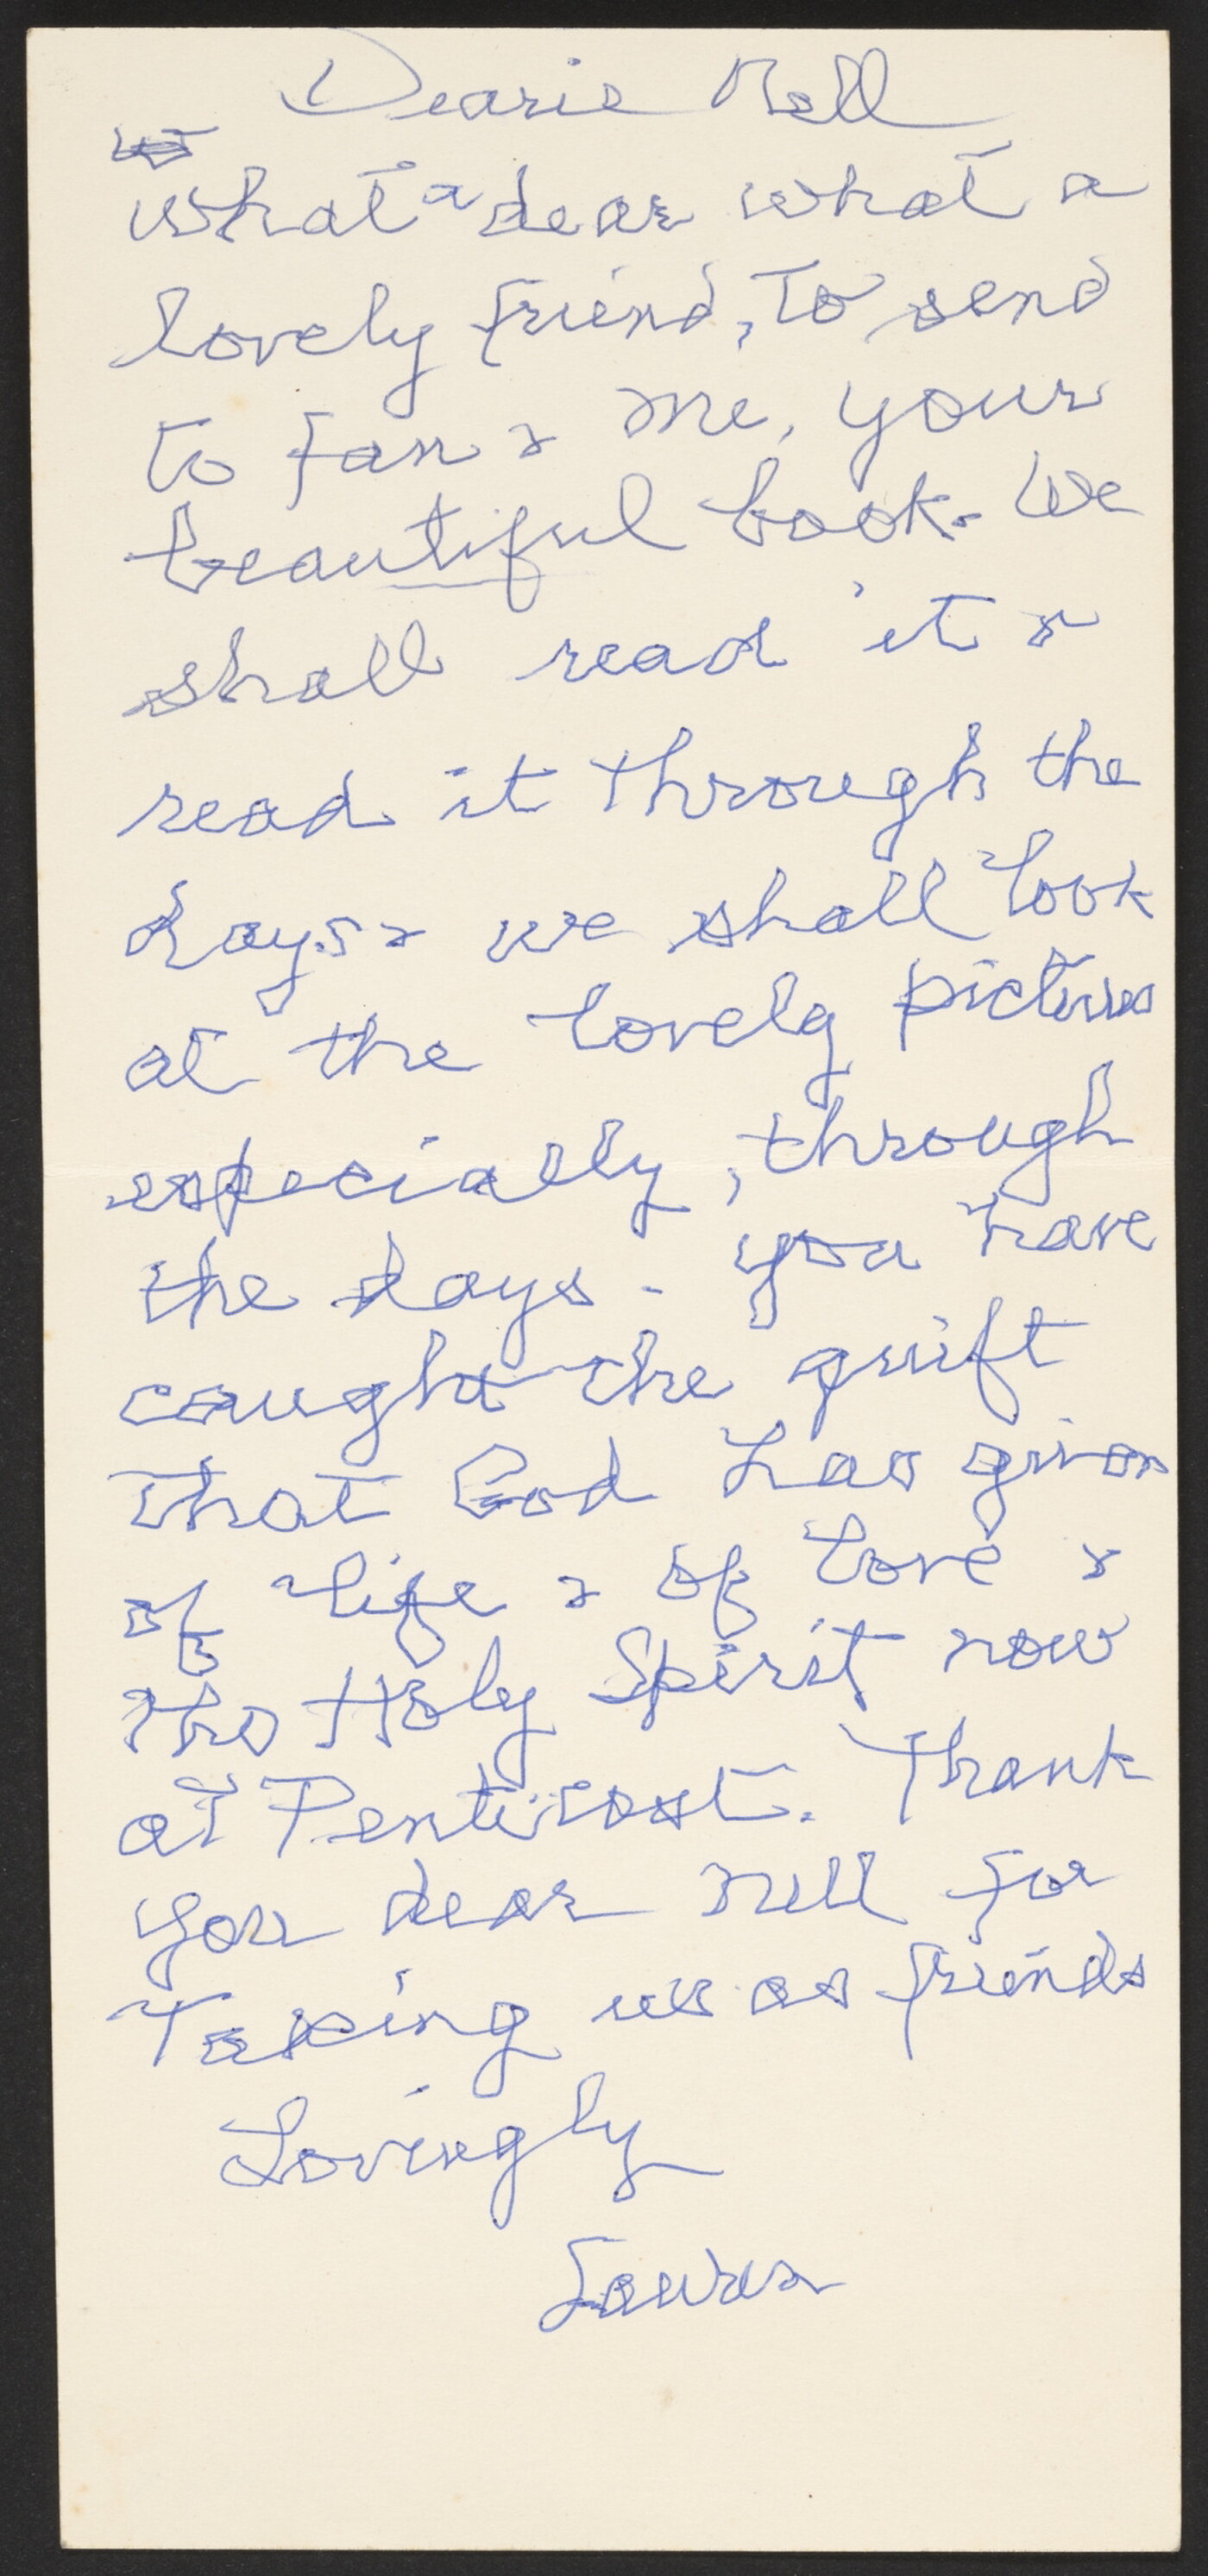 Dearie Nell
what a dear what a
lovely friend, to send
to Fan & me, your
beautiful book. We
shall read it &
read it through the
days & we shall look
at the lovely pictures
especially, through
the days - you have
caught the quift
that God has given
of life & of love &
to
the Holy Spirit now
at Penticost. Thank
you dear Nell for
Taking us as friends
Lovingly
Laura